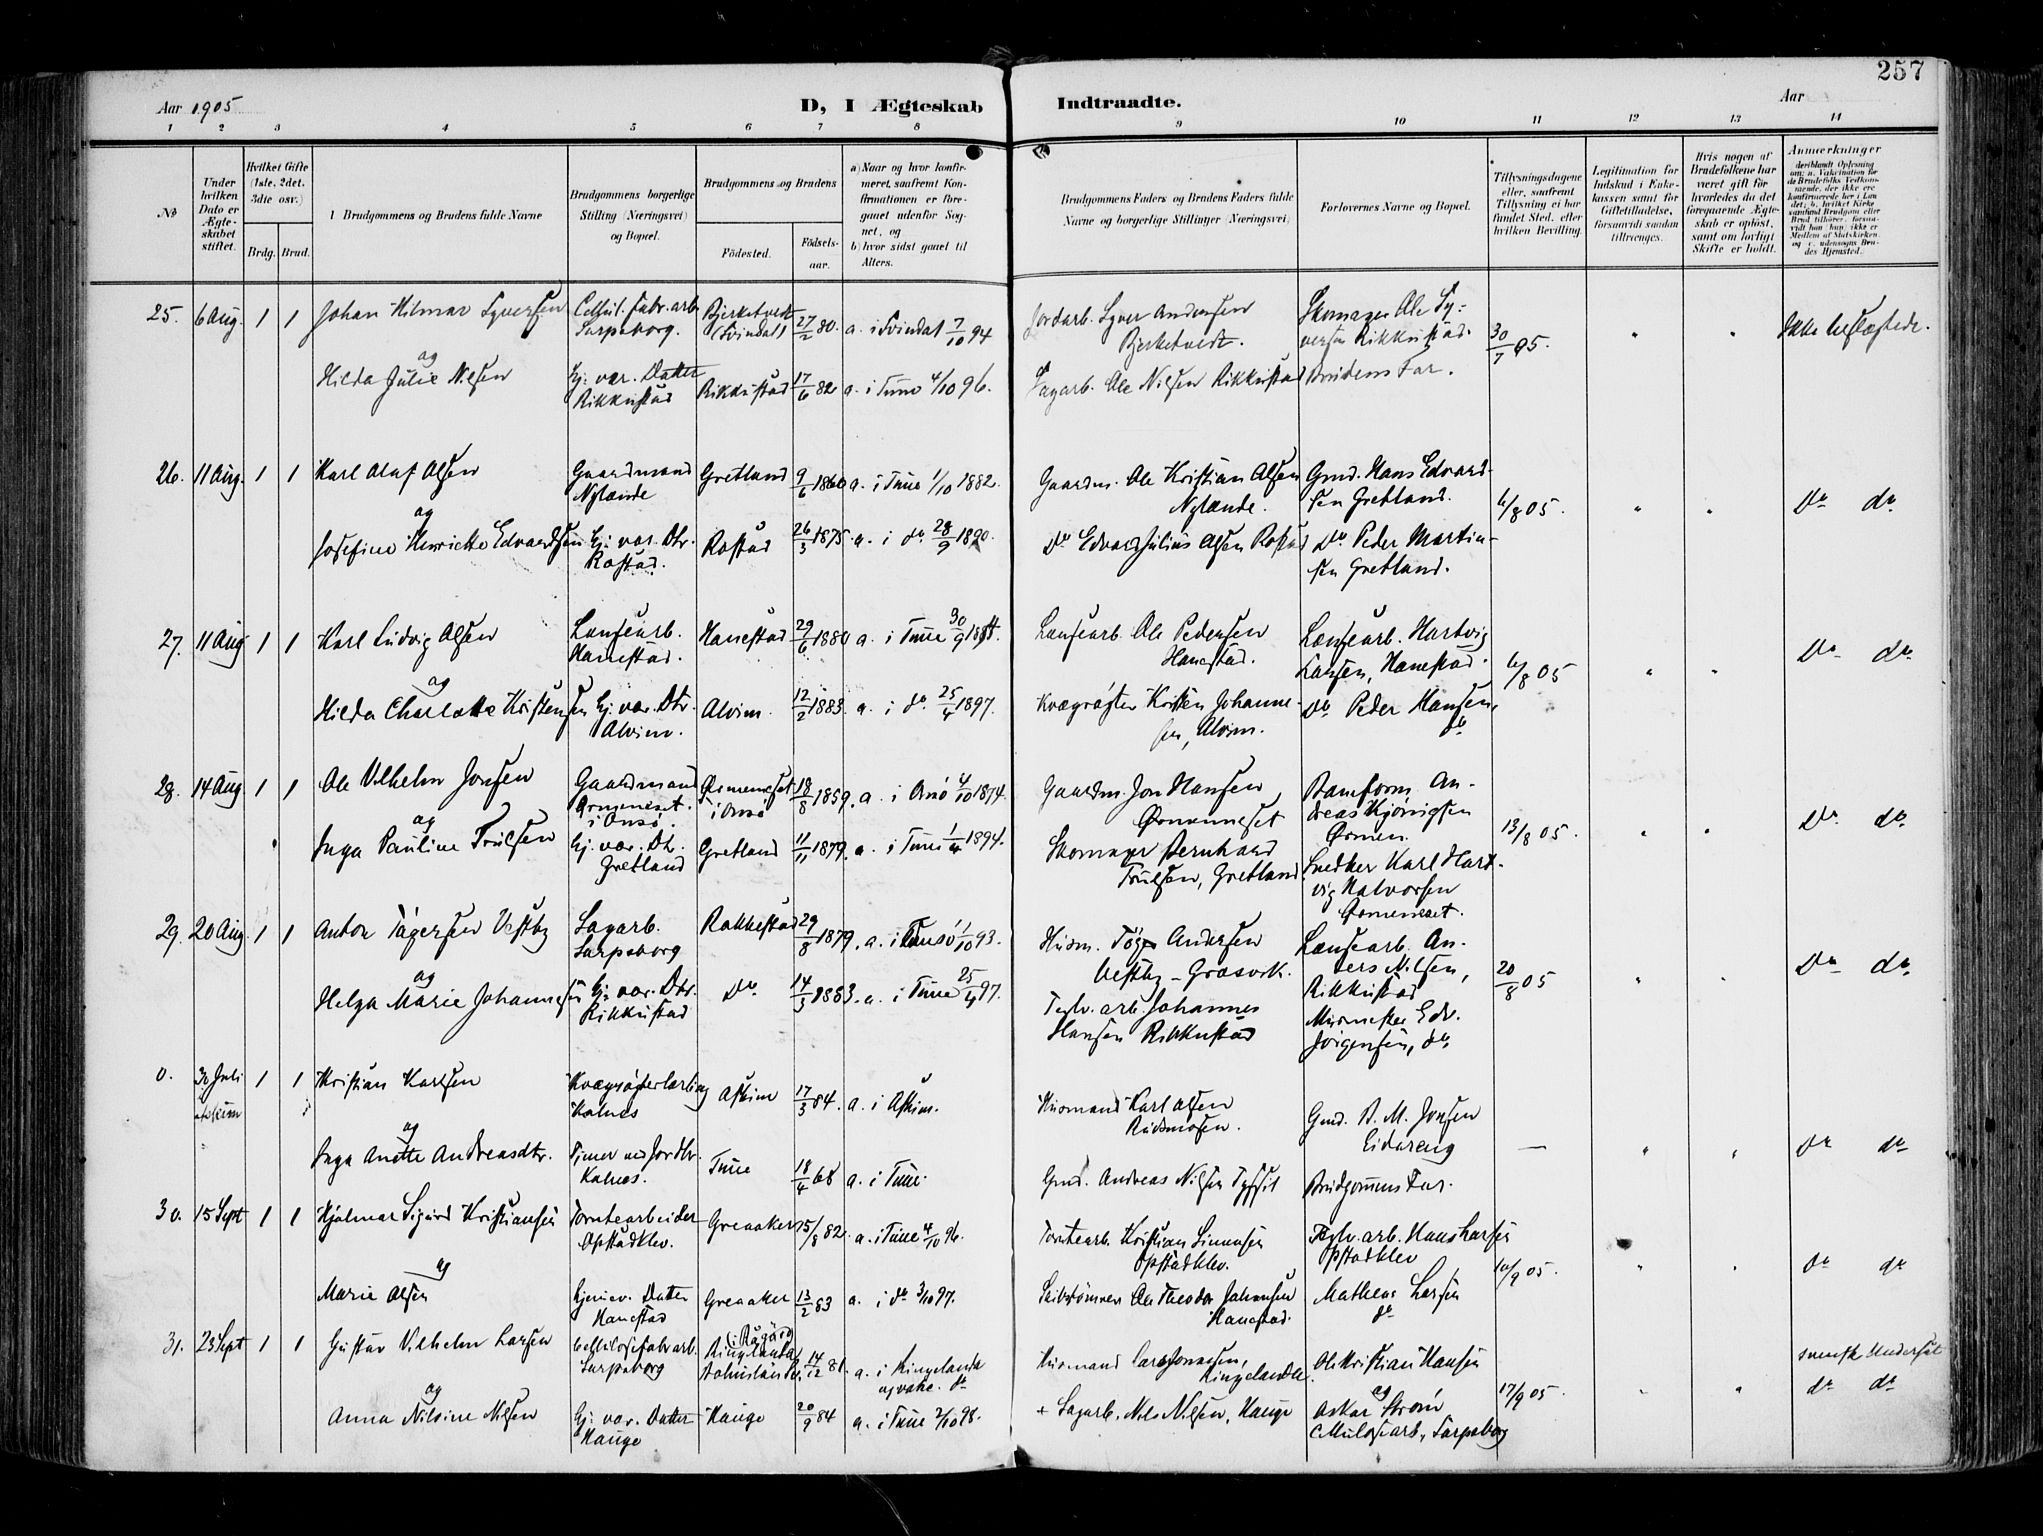 257
Aar 1905
D, I Ægteskab
Indtraadte.
Aar
1 2 3 4 5 6 7 8 9 10 11 12 13 14
No
Under hvilken Dato er Ægteskabet stiftet.
Hvilket Gifte (1ste, 2det, 3die osv.)
Brdg. Brud.
1 Brudgommens og Brudens fulde Navne
Brudgommens borgerlige Stilling (Næringsvei) og Bopæl.
Brudgommens og Brudens
Födested.
Födsels-aar.
a) Naar og hvor konfirmeret, saafremt Konfirmationen er foregaaet udenfor Sognet, og
b) hvor sidst gaaet til Alters.
Brudgommens Faders og Brudens Faders fulde Navne og borgerlige Stillinger (Næringsvei)
Forlovernes Navne og Bopæl.
Tillysningsdagene eller, saafremt Tillysning ei har fundet Sted, efter hvilken Bevilling.
Legitimation for Indskud i Enkekassen samt for Giftetilladelse, forsaavidt saadan tiltrænges.
Hvis nogen af Brudefolkene har været gift för hvorledes da det foregaaende Ægteskab er oplöst, samt om lovligt Skifte er holdt.
Anmærkninger
25. 6 Aug. 1 1 Johan Hilmar Syversen Cellul. fabr. arb Sarpsborg. Bjerketvedt (Svindal) 27/2 80. a. i Svindal 7/10 94 Jordarb. Syver Andersen Bjerketvedt. Skomager Ole Syversen Rikkustad. 30/7 05. " " Ikke beslægtede.
og
Hilda Julie Nilsen Hj. vær. Datter Rikkustad Rikkustad 17/6 82 a. i Tune 4/10 96. Sagarb. Ole Nilsen Rikkustad Brudens Far.
26. 11 Aug. 1 1 Karl Olaf Olsen Gaardmand Nylænde Gretland 9/6 1860 a. i Tune 1/10 1882. Gaardm. Ole Kristian Olsen Nylænde. Gmd. Hans Edvardsen Gretland. 6/8 05. " " Do do.
og
Josefine Henriette Edvardsen Hj. vær. Dtr. Rostad. Rostad 26/3 1875. a. i do 28/9 1890. Do Edvard Julius Olsen Rostad Do Peder Martinsen Gretland.
27. 11 Aug 1 1 Karl Ludvig Olsen Lænsearb. Hanestad. Hanestad 29/6 1880 a. i Tune Lænsearb. Ole Pedersen Hanestad. Lænsearb. Hartvig Larsen, Hanestad. 6/8 05 " " Do do.
og
Hilda Charlotte Kristensen Hj. vær. Dtr. Alvim. Alvim. 12/2 1883. a. i do. 25/4 1897. Kvægrøgter Kristen Johannesen, Alvim. Do Peder Hansen, do
28. 14 Aug 1 1 Ole Vilhelm Jonsen Gaardmand Ørmeneset i Onsø. Ørmeneset i Onsø 18/8 1859. a. i Onsø 4/10 1874. Gaardm. Jon Hansen Ørmenneset Baneform. Andreas Kjønigsen Ørmen. 13/8 05. " " Do. do.
og
Inga Pauline Trulsen Hj. vær. Dtr. Gretland Gretland 11/11 1879. a. i Tune 1/4 1894. Skomager Bernhard Trulsen, Gretland Snedker Karl Hartvig Halvorsen Ørmeneset.
29. 20 Aug. 1 1 Anton Tøgersen Vestby Sagarb. Sarpsborg Rakkestad 29/8 1879. a. i Onsø 1/10 93. Husm. Tøger Andersen Vestby - Græsvik. Lænsearb. Anders Nilsen, Rikkustad 20/8 05 " " Do do.
og
Helga Marie Johannesen Hj. vær. Dtr. Rikkustad Do 14/3 1883. a. i Tune 25/4 97. Teglv. arb. Johannes Hansen Rikkustad Murmester Edv. Jørgensen, do.
0. 30 Juli 1 1 Kristian Karlsen Kvægrøgterlærling Kalnes Askim 17/3 84. a. i Askim. Husmand Karl Olsen Rudsmosen. Gmd. B. M. Jonsen Eidareng — " " do do.
og
Inga Anette Andreasdtr. Kalnes. Tune 18/4 68 a. i Tune. Gmd. Andreas Nilsen Brudgommens Far.
30. 15 Sept 1 1 Hjalmar Sigurd Kristiansen Tomtearbeider Opstadklev. Greaaker 15/8 82. a. i Tune 4/10 96. Tomtearb. Kristian Simensen Opstadklev. Teglv. arb. Hans Larsen Opstadklev 10/9 05. " " do do
og
Marie Olsen Hjemmev. Datter Hanestad Greaaker 13/2 83 a. i do 3/10 97. Skibstømmerm. Ole Theodor Johansen Hanestad. Matheus Larsen do
31. 23 Sept 1 1 Gustav Vilhelm Larsen Cellulosefabr arb. Sarpsborg 14/12 81. a. i Ringelanda Husmand Lars Jonasen, Ringelanda Ole Kristian Hansen 17/9 05. " " svensk Undersåt do do
og
Anna Nilsine Nilsen Hj. vær. Datter Hauge Hauge 20/9 84 a. i Tune 2/10 98. + Sagarb. Nils Nilsen, Hauge og Oskar Strøm Cellulosearb., Sarpsborg